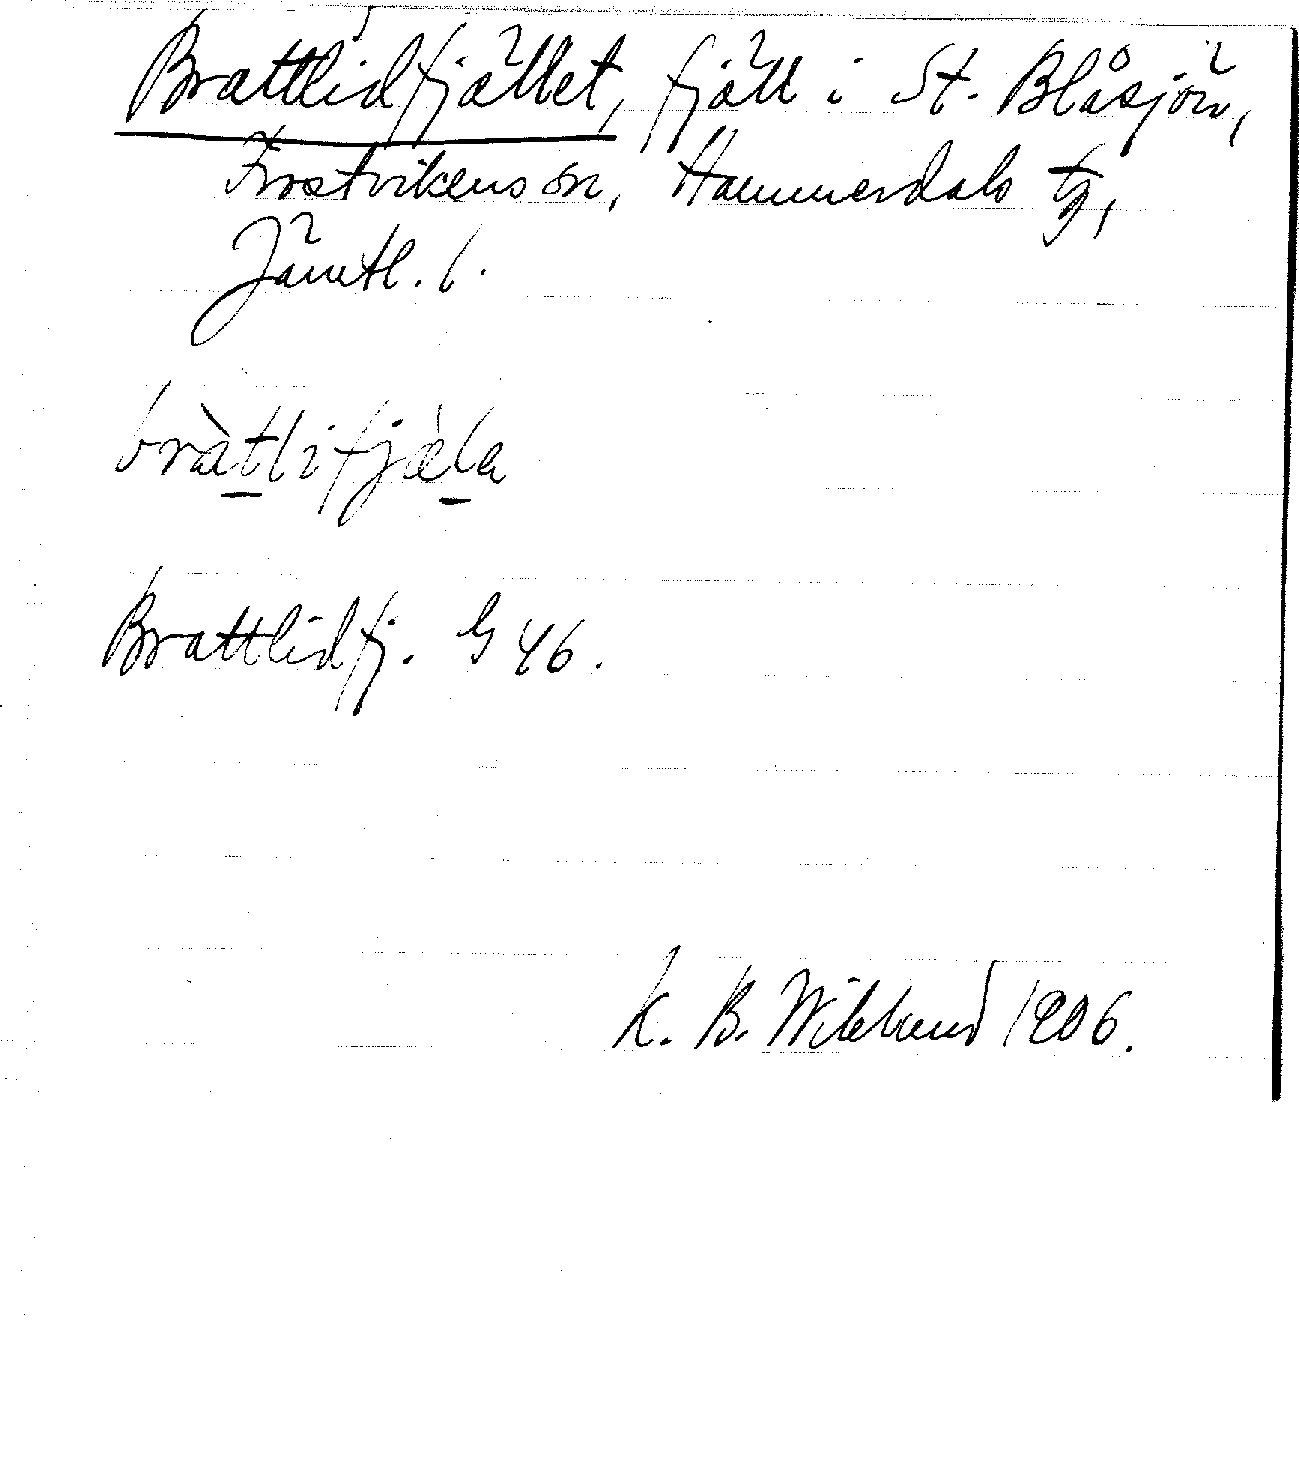 Brattlidfjället, fjäll i St. Blåsjön,
Frostvikens sn, Hammerdals tg,
Jämtl. l.
bràtlifjæ̀la
Brattlidfj. G 46.
K. B. Wiklund 1906.